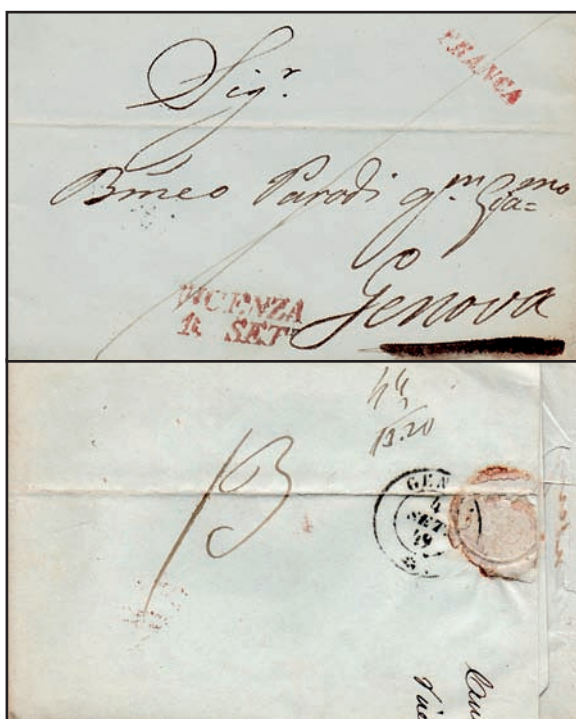 FRANCA
Sigr.
Bmeo Parodi qm Giamo
Genova
VICENZA
1. SETT
44
13.20
13
GEN
4
SET
49